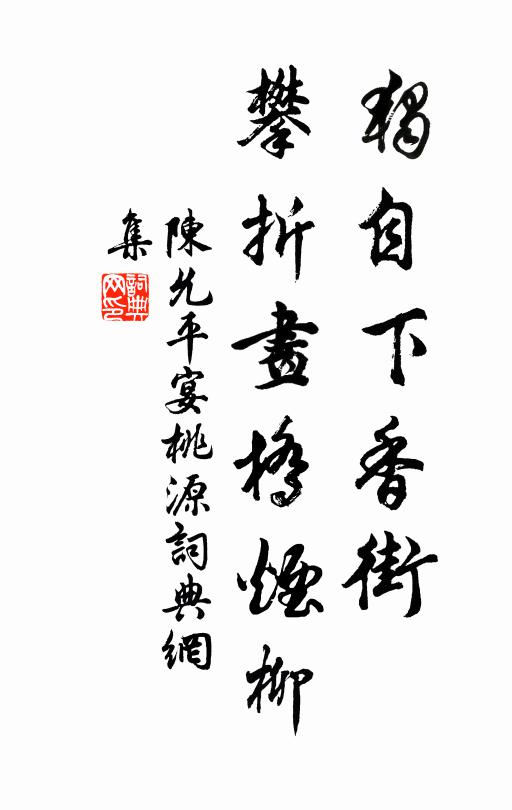 獨自下香街
攀折畫橋煙柳
陳允平宴桃源詞典網
集
詞典
網印